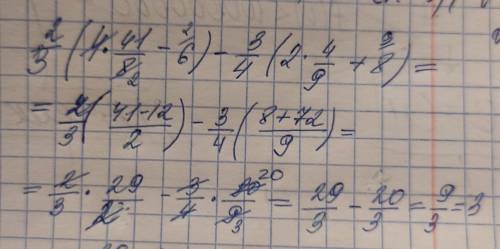 2/3 (4 · 41/8 2 - 2 6) - 3/4 (2 · 4/9 + 9 8) =
= 2/3 (41-12/2) - 3/4 (8+72/9) =
= 2/3 · 29/2 - 3/4 · 80 20/9 3 = 29/3 - 20/3 = 9/3 = 3